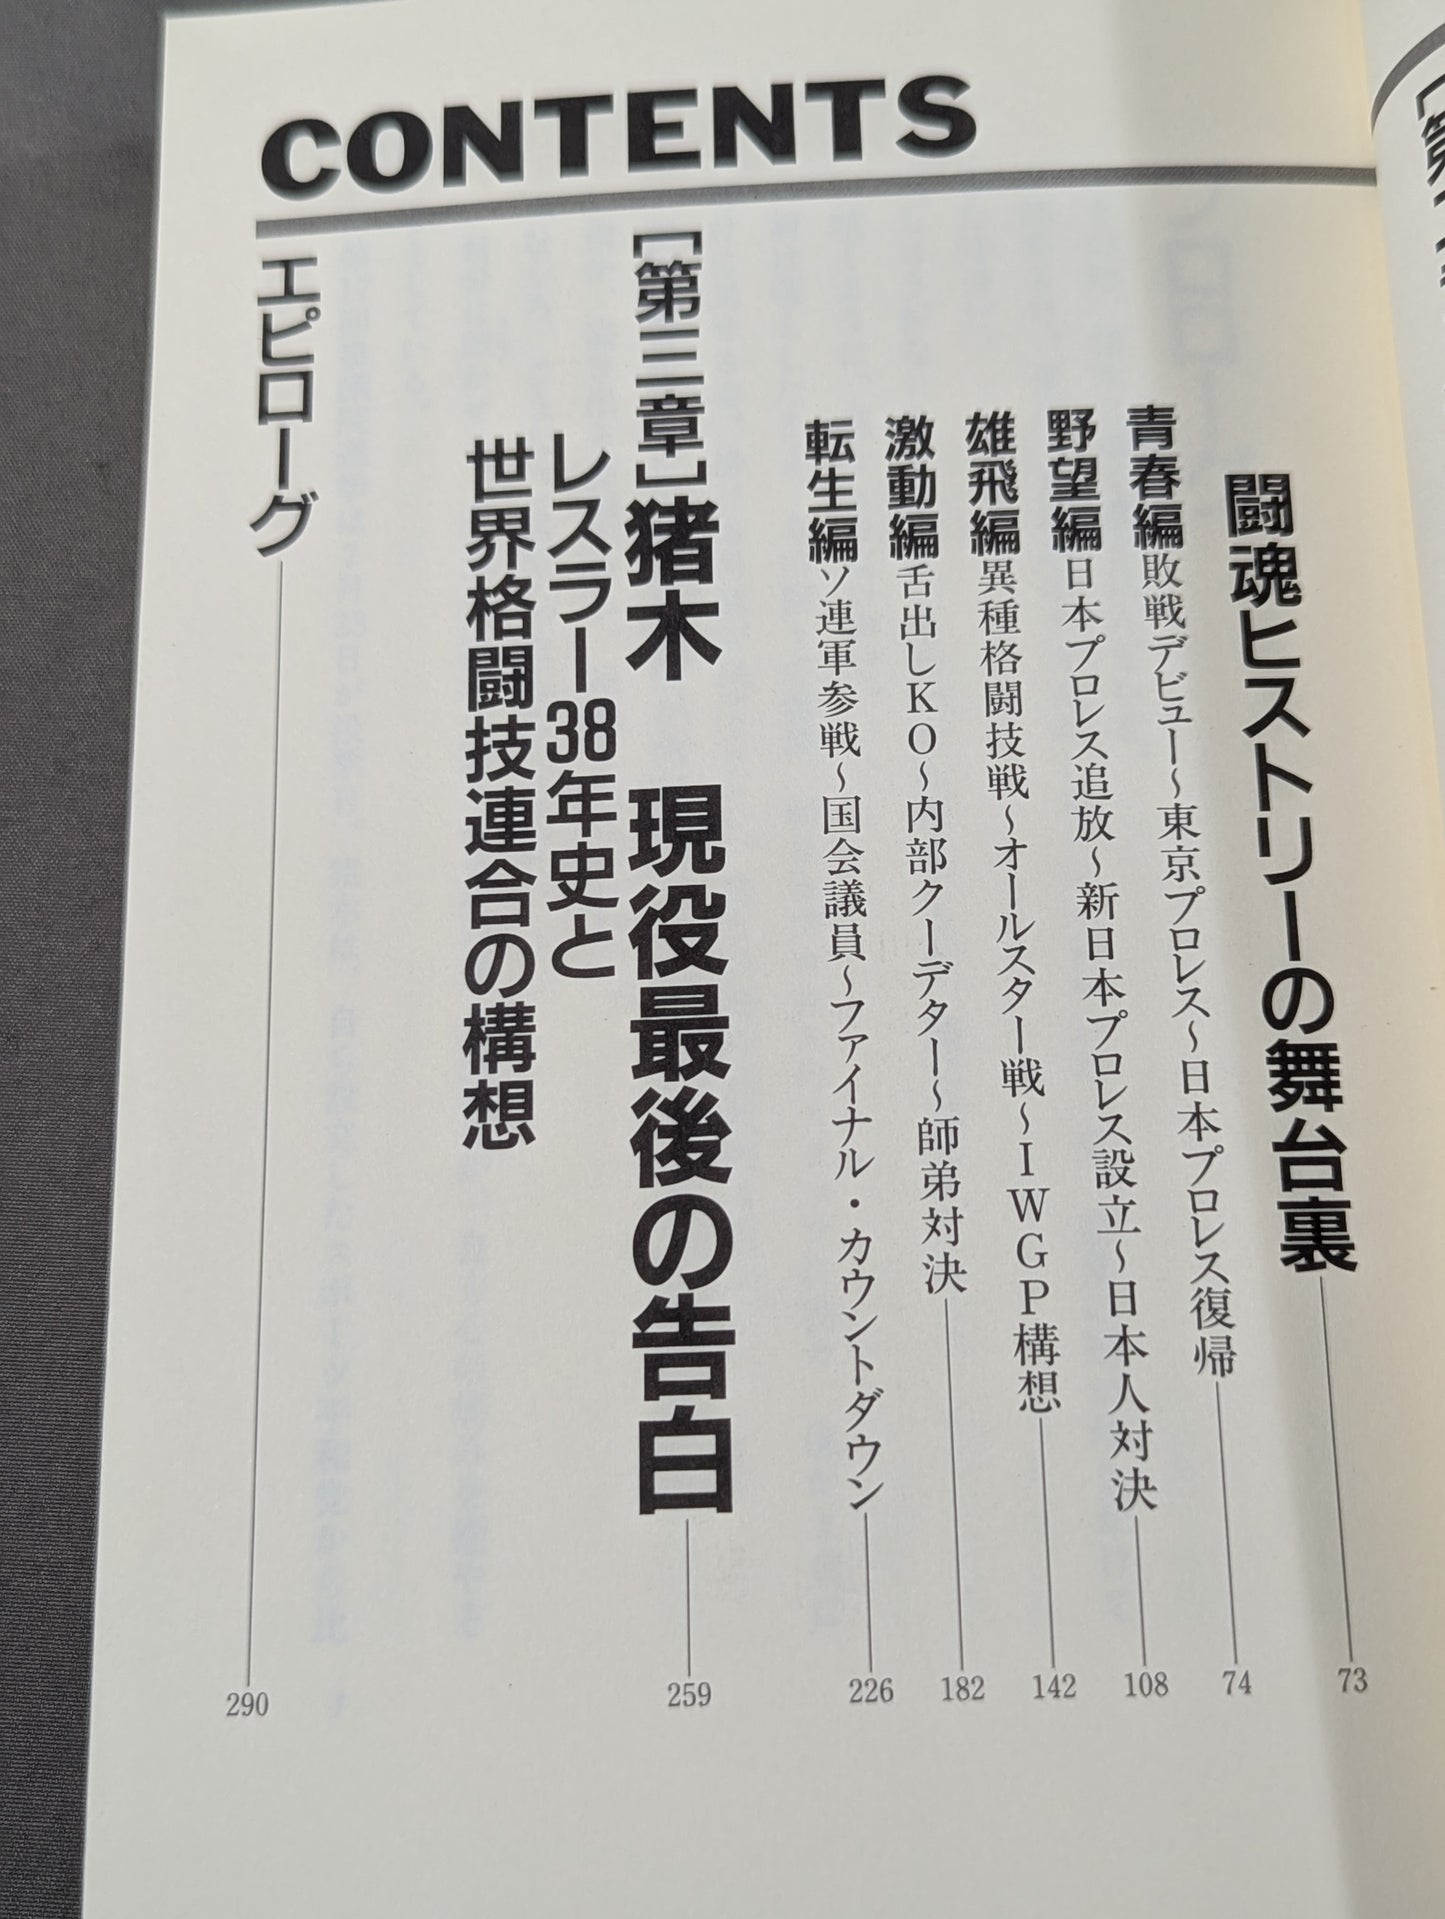 CONTENTS
闘魂ヒストリーの舞台裏 73
青春編 敗戦デビュー〜東京プロレス〜日本プロレス復帰 74
野望編 日本プロレス追放〜新日本プロレス設立〜日本人対決 108
雄飛編 異種格闘技戦〜オールスター戦〜IWGP構想 142
激動編 舌出しKO〜内部クーデター〜師弟対決 182
転生編 ソ連軍参戦〜国会議員〜ファイナル・カウントダウン 226
[第三章]猪木 現役最後の告白 259
レスラー38年史と
世界格闘技連合の構想
エピローグ 290